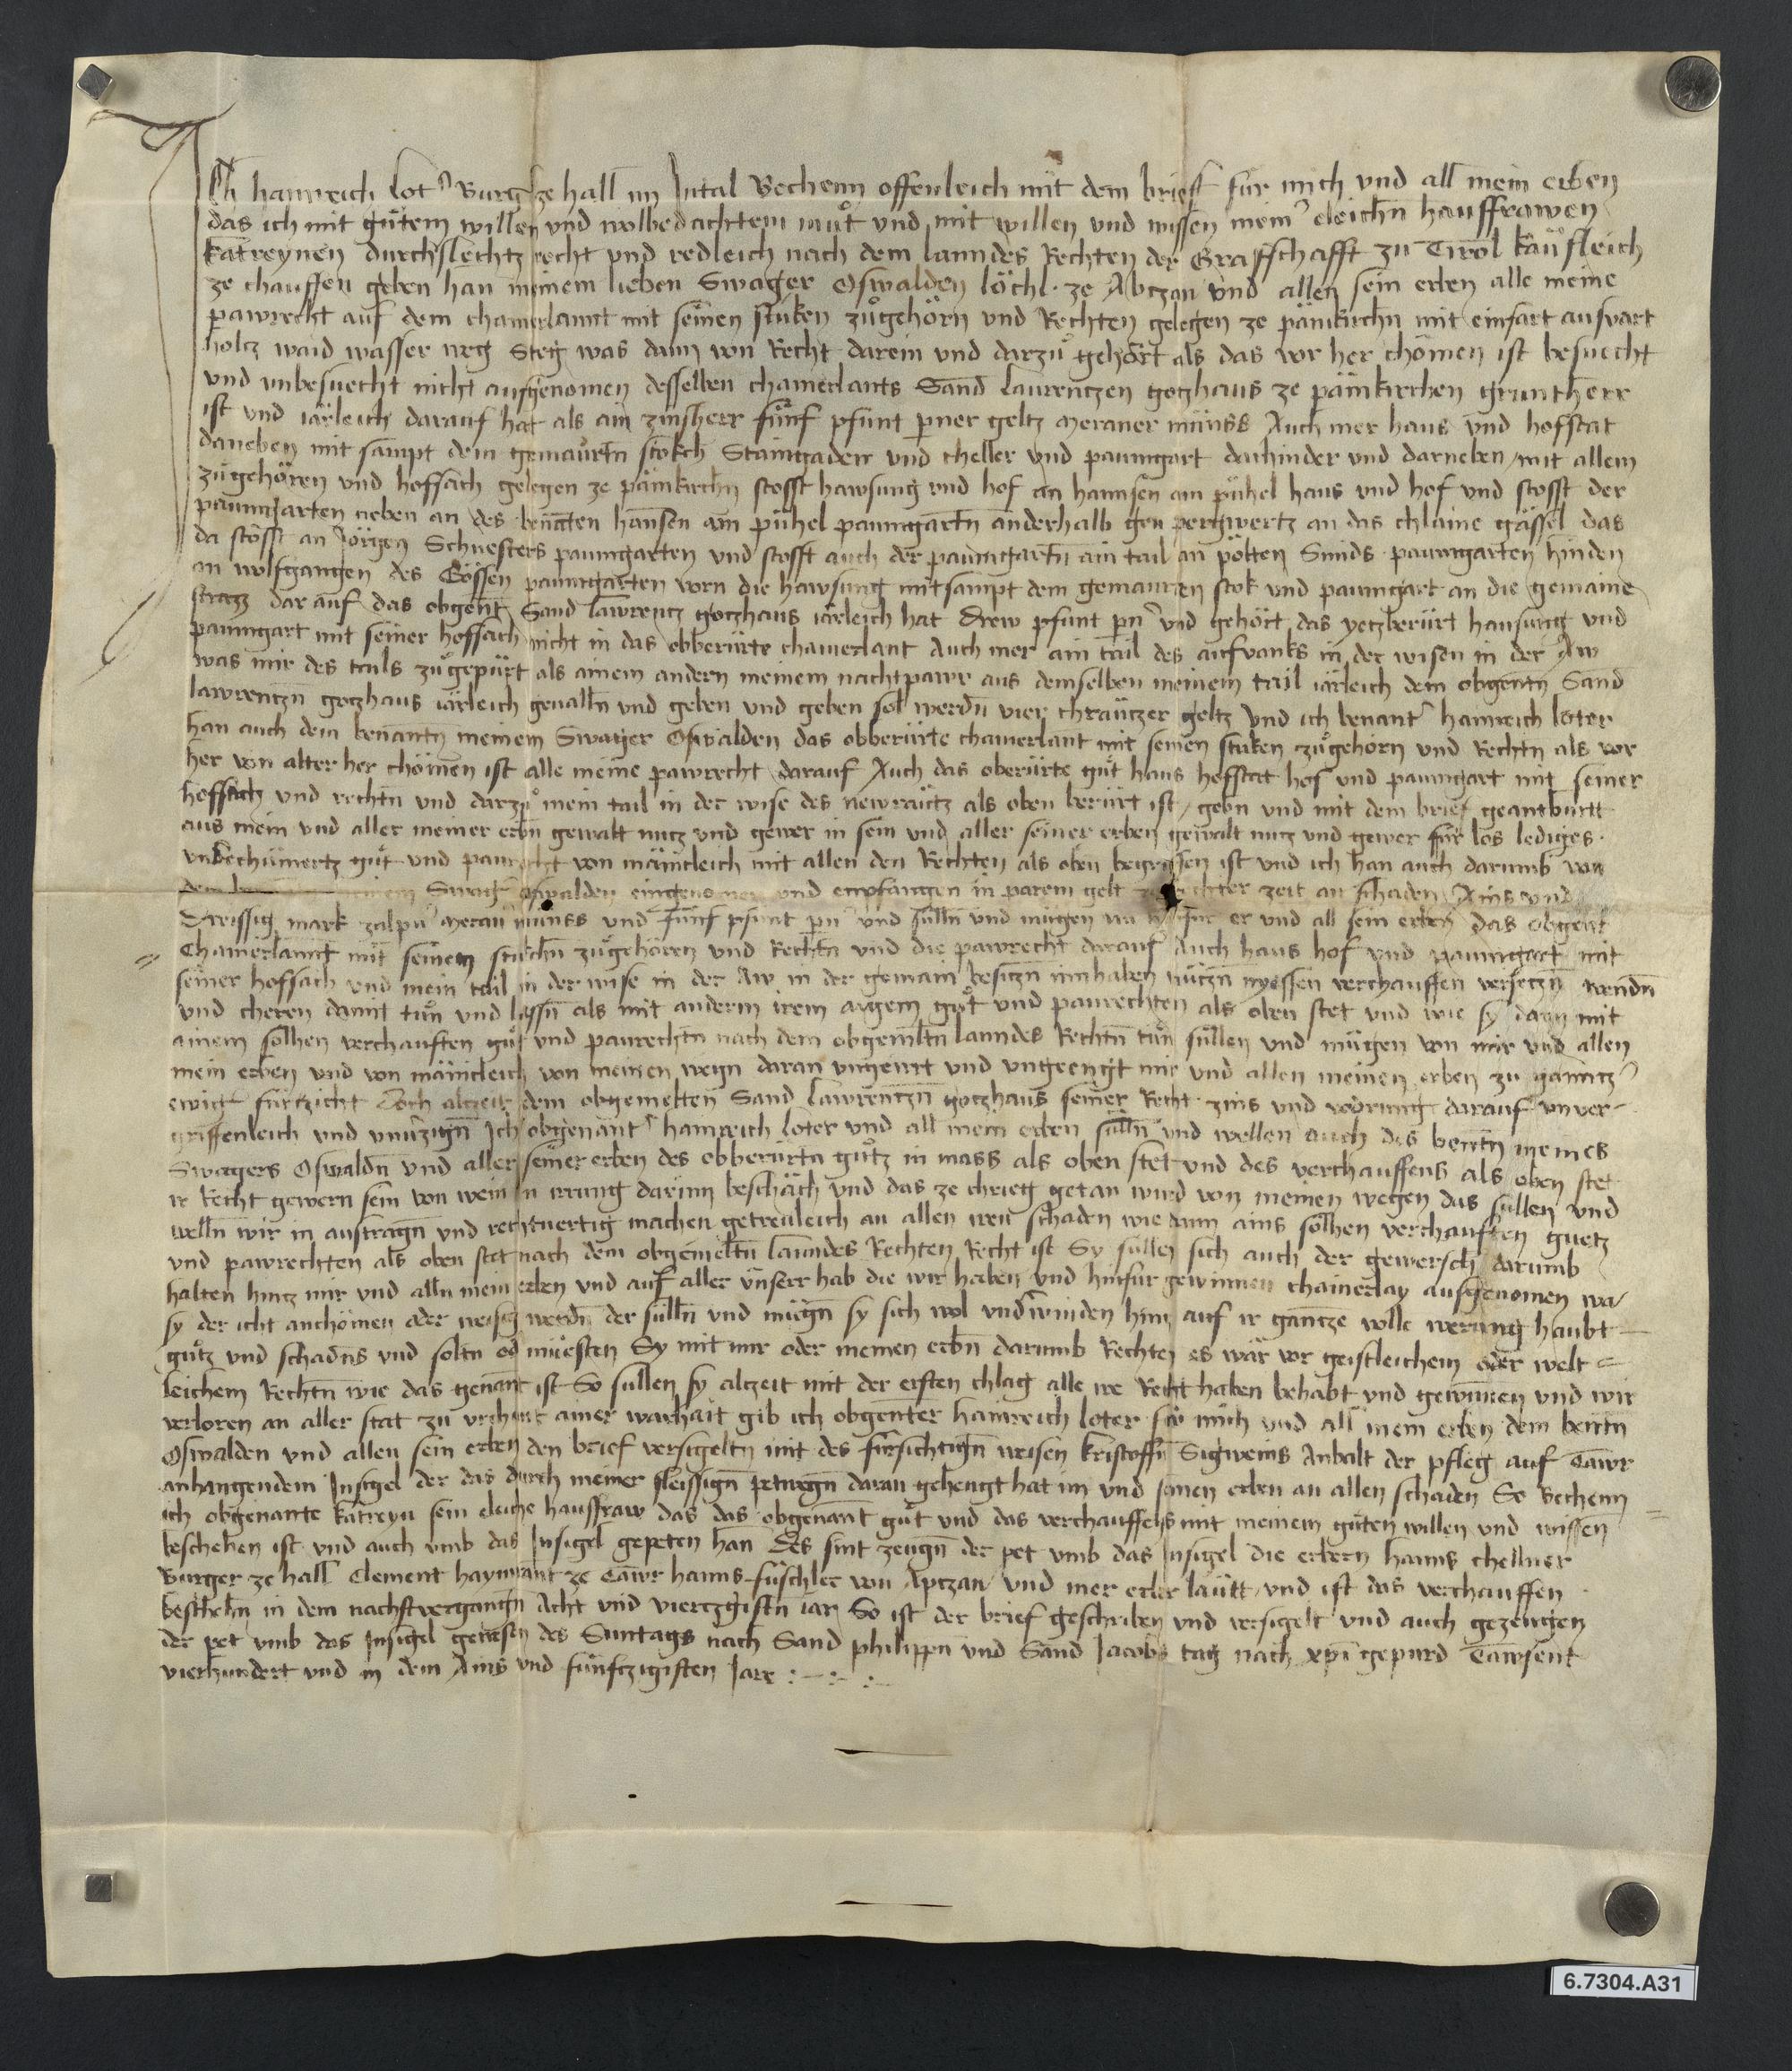 Ich hainreich lot' Burg' ze hall im Intal Bechenn offenleich mit dem brieff für mich vnd all mein erben
das ich mit gůtem willen vnd wolbedachtem můt vnd mit willen vnd wissen meinr eleichn hausfrawen
katreynen durchslechtz recht vnd redleich nach dem lanndes Rechten der Graffschafft zu Tirol kaufleich
ze chauffen geben han meinem lieben Swager Oswalden löchl ze Abczan vnd allen sein erben alle meine
pawrecht auf dem chamerlannt mit seinen stuken zůgehörn vnd Rechten gelegen ze pämkirchn mit einfart ausvart
holtz waid wasser weg Steg was dann von Recht darein vnd darzů gehört als das vor her chömen ist besuecht
vnd vnbesuecht nicht ausgenomen desselben chamerlants Sand laurentzen gotzhaus ze pämkirchen gruntherr
ist vnd iärleich darauf hat als ain zinsherr fünf pfunt perner geltz meraner münss Auch mer haus vnd hofstat
daneben mit sampt dem gemaurtn stokch Staingaden vnd cheller vnd paumgart dahinder vnd darneben mit allem
zůgehören vnd hoffsach gelegen ze pämkirchn stosst hawsung vnd hof an hannsen am pühel haus vnd hof vnd stosst der
paumgarten neben an des benanten hansen am pühel paumgartn anderhalb gen pergwertz an das chlaine gässel das
da stosst an Jörgen Schuesters paumgarten vnd stosst auch der paumgartn ain tail an pötten Smids paumgarten hinden
an wolfgangen des Gössen paumgarten vorn die hawsung mitsampt dem gemaurten stok vnd paumgart an die gemaine
strazz darauf das obgent Sand lawrentz gotzhaus iärleich hat drew pfunt pern' vnd gehört das yetzberürt hausung vnd
paumgart mit seiner hoffsach nicht in das obberürte chamerlant Auch mer ain tail des aufvanks in der wisen in der Aw
was mir des tails zůgepürt als ainem andern meinem nachtpawr aus demselben meinem tail iärleich dem obgentn Sand
lawrentzn gotzhaus iärleich geualln vnd geben vnd geben sol werdn vier chräutzer geltz vnd ich benant' hainreich loter
han auch dem benantn meinem Swager Oswalden das obberürte chamerlant mit seinen stuken zůgehörn vnd Rechtn als vor
her von alter her chömen ist alle meine pawrecht darauf Auch das oberürte gůt haus hofstat hof vnd paumgart mit seiner
hoffsach vnd rechtn vnd darzů mein tail in der wise des newraütz als oben berürt ist gebn vnd mit dem brief geantburtt
aus mein vnd aller meiner erbn gewalt nutz vnd gewer in sein vnd aller seiner erben gewalt nutz vnd gewer für los lediges
vnbechümertz gůt vnd paurecht von mäincleich mit allen den Rechten als oben begriffen ist vnd ich han auch darumb von
Swag' Oswalden eingenomen vnd empfangen in parem gelt ze rechter zeit an schaden Ains vnd
dreissig mark zalpn' meran' münss vnd fünf pfunt pn' vnd sülln vnd mügen nu hinfür er vnd all sein erben das obgent
Chamerlannt mit seinem stukchn zůgehören vnd Rechtn vnd die pawrecht darauf Auch haus hof vnd paumgart mit
seiner hoffsach vnd mein tail in der wise in der Aw in der gemain besitzn innhaben nützn nyessen verchauffen versetzn wendn
vnd cheren damit tůn vnd lassn als mit anderm irem aigem gůt vnd paurechten als oben stet vnd wie sy dann mit
ainem solhen verchauften gůt vnd paurechtn nach dem obgemeltn lanndes Rechtn tůn süllen vnd mügen von mir vnd allen
mein erben vnd von mäincleich von meinen wegn daran vngeirrt vnd vngeengt mir vnd allen meinen erben zu gäntz'
ewig' fürtzicht doch altzeit dem obgemelten Sand lawrentzn gotzhaus seiner Recht zins vnd vodrung darauf vnuer-
griffenleich vnd vnuerzign Ich obgenant' hainreich loter vnd all mein erben sülln vnd wellen auch des bentn meines
Swagers Oswaldn vnd aller seiner erben des obberürtn gůtz in mass als oben stet vnd des verchauffens als oben stet
ir Recht gewern sein von wem in irrung darinn beschäch vnd das ze chrieg getan wurd von meinen wegen das süllen vnd
welln wir in austragn vnd rechtuertig machen getreuleich an allen iren schaden wie dann ains solhen verchauften guetz
vnd pawrechten als oben stet nach dem obgemeltn lanndes Rechten Recht ist Sy süllen sich auch der gewerschaft darumb
halten hintz mir vnd alln mein erben vnd auf aller vnserr hab die wir haben vnd hinfür gewinnen chainerlay ausgenomen wa
sy der icht anchömen oder weisig werdn der sülln vnd mügn sy sich wol vnderwinden hintz auf ir gantze volle werung haubt
gůtz vnd schadns vnd soltn od' müesten Sy mit mir oder meinen erbn darumb Rechten es wär vor geistleichem oder welt=
leichem Rechtn wie das genant ist So sullen sy altzeit mit der ersten chlag alle ire Recht haben behabt vnd gewunnen vnd wir
verloren an aller stat zu vrchunt ainer warhait gib ich obgenter hainreich loter für mich vnd all mein erben dem bentn
Oswalden vnd allen sein erben den brief versigeltn mit des fürsichtign weisen kristoffn Sigweins Anbalt der pfleg auf Tawr
anhangendem Insigel der das durch meiner fleissign petwegn daran gehengt hat im vnd seinen erben an allen schaden So Bechenn
ich obgenante katreyn sein eleiche hausfraw das das obgenant gůt vnd das verchauffens mit meinem gůten willen vnd wissen
beschehen ist vnd auch vmb das Insigel gepeten han Des sint zeugn der pet vmb das Insigel die erbern hanns chellner
Burger ze hall Clement haymant ze Tawr hanns füschler von Aptzan vnd mer erber laütt vnd ist das verchauffen
beschehn in dem nachstvergangn Acht vnd viertzgistn iar So ist der brief geschriben vnd versigelt vnd auch gezeugen
der pet vmb das Insigel gewesen des Suntags nach Sand philippn vnd Sand Jacobs tag nach xpi gepurd Tawsent
vierhundert vnd in dem Ains vnd fünftzigisten Jare :-·:-·:-
6.7304.A31